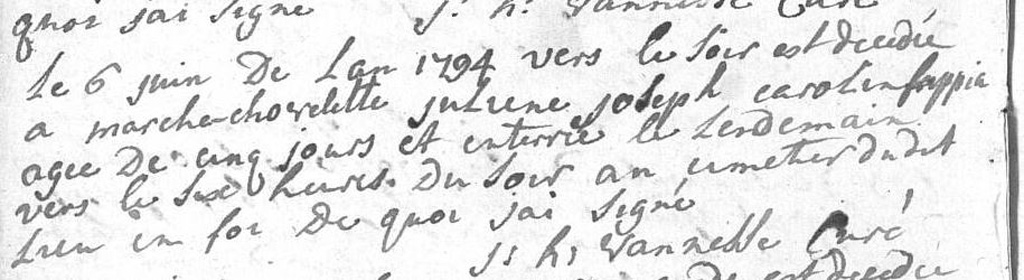 quoi jai signé j: h: Vannesse Curé
Le 6 juin De Lan 1794 vers le soir est decedée
a marche-chovelette juliene joseph carolin frappia
agee De cinq jours et enterrée le Lendemain
vers le six heures Du soir au cimetier dudit
Lieu en foi De quoi jai signé
j: h: Vannesse Curé
est decedée